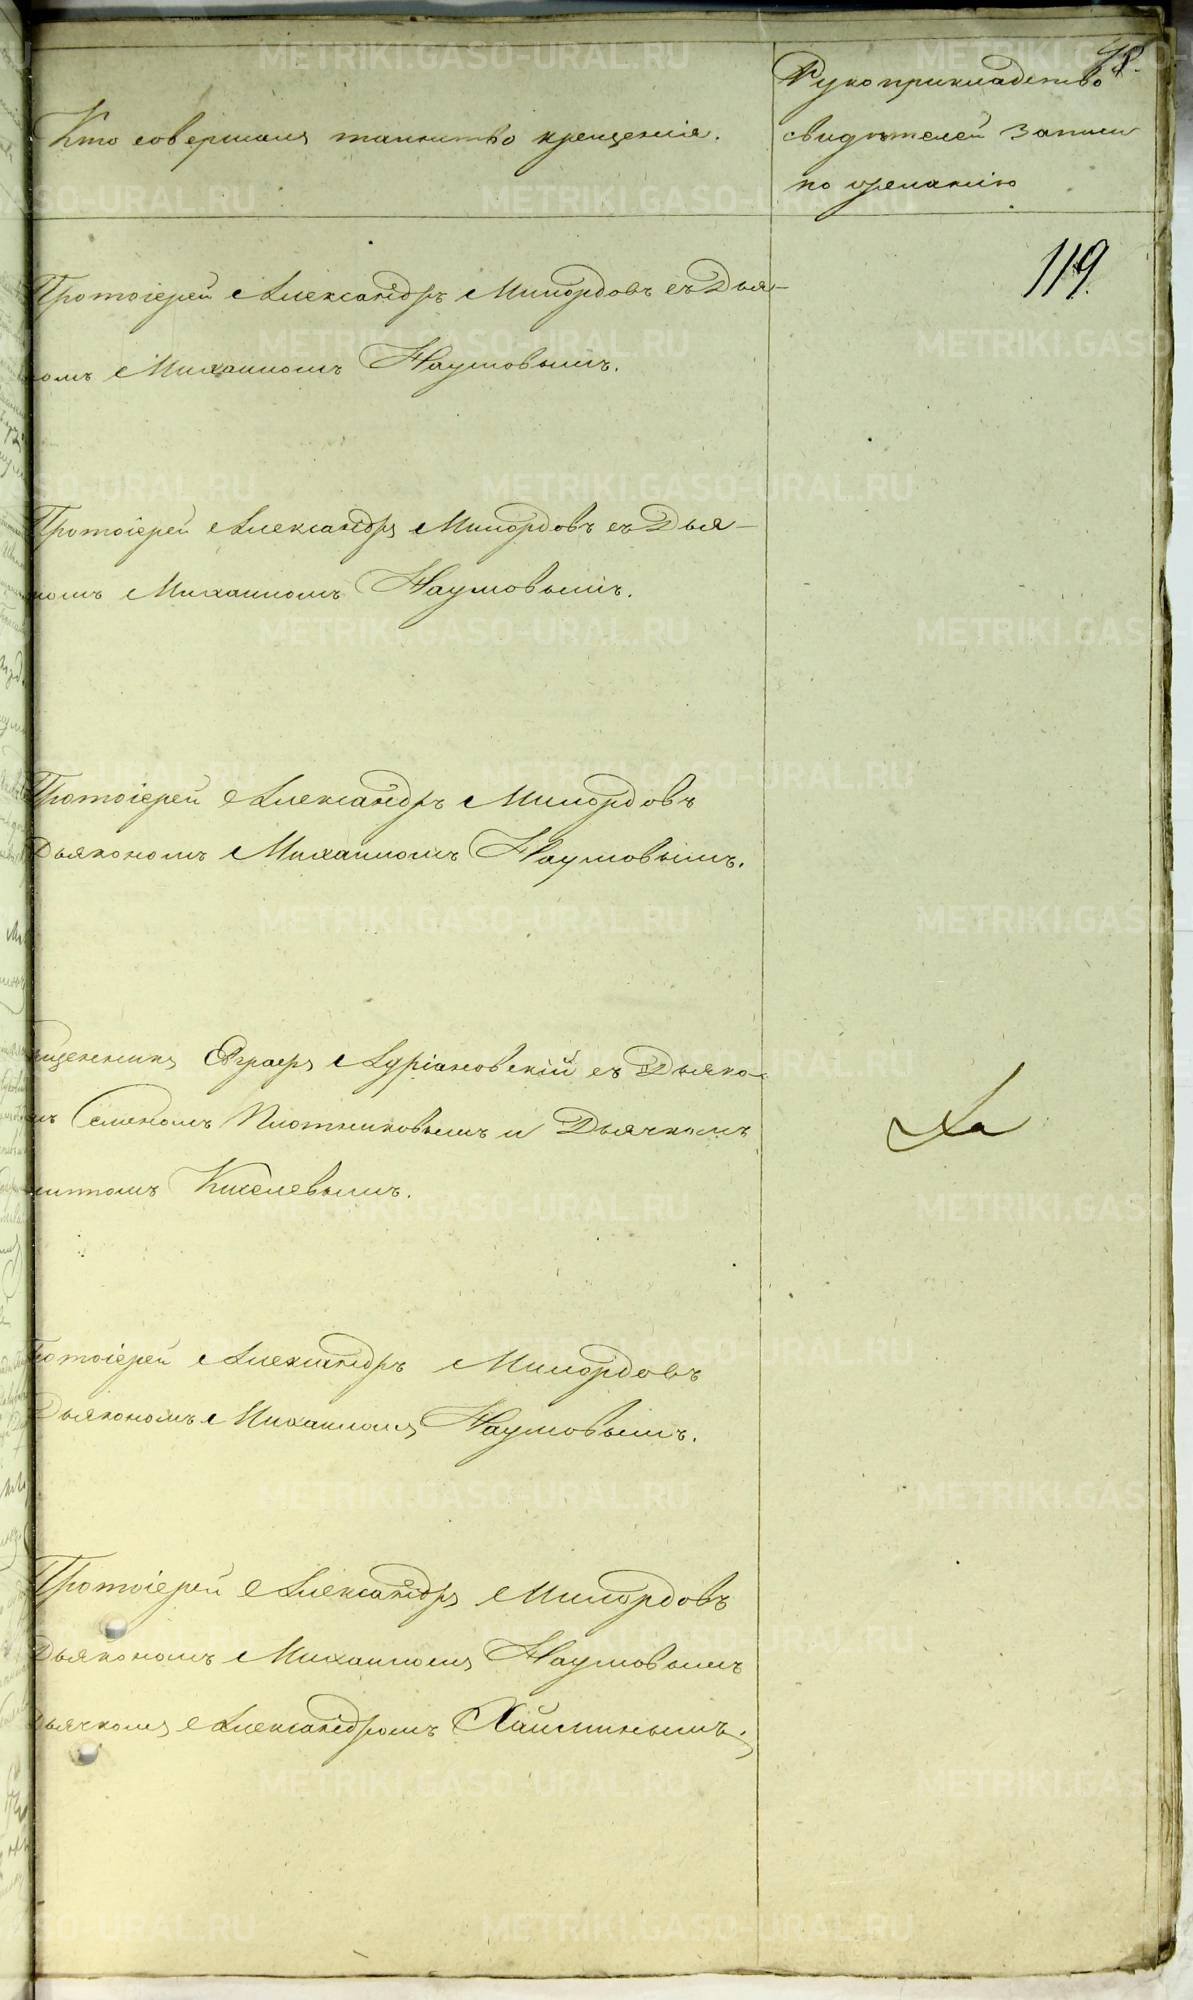 98.
Кто совершалъ таинство крещенія.
Рукоприкладство
свидѣтелей записи
по желанію
119.
Протоіерей Александръ Милордовъ съ Дья-
номъ Михаиломъ Наумовымъ.
Протоіерей Александръ Милордовъ съ Дья-
номъ Михаиломъ Наумовымъ.
Протоіерей Александръ Милордовъ
Дьякономъ Михаиломъ Наумовымъ.
щенникъ Евграфъ Адріановскій съ Дьяко-
мъ Семеномъ Плотниковымъ и Дьячкомъ
Киселевымъ.
Ха
ротоіерей Александръ Милордовъ
Дьякономъ Михаиломъ Наумовымъ.
Протоіерей Александръ Милордовъ
Дьякономъ Михаиломъ Наумовымъ
Дьячкомъ Александромъ Хайминымъ.
METRIKI.GASO-URAL.RU